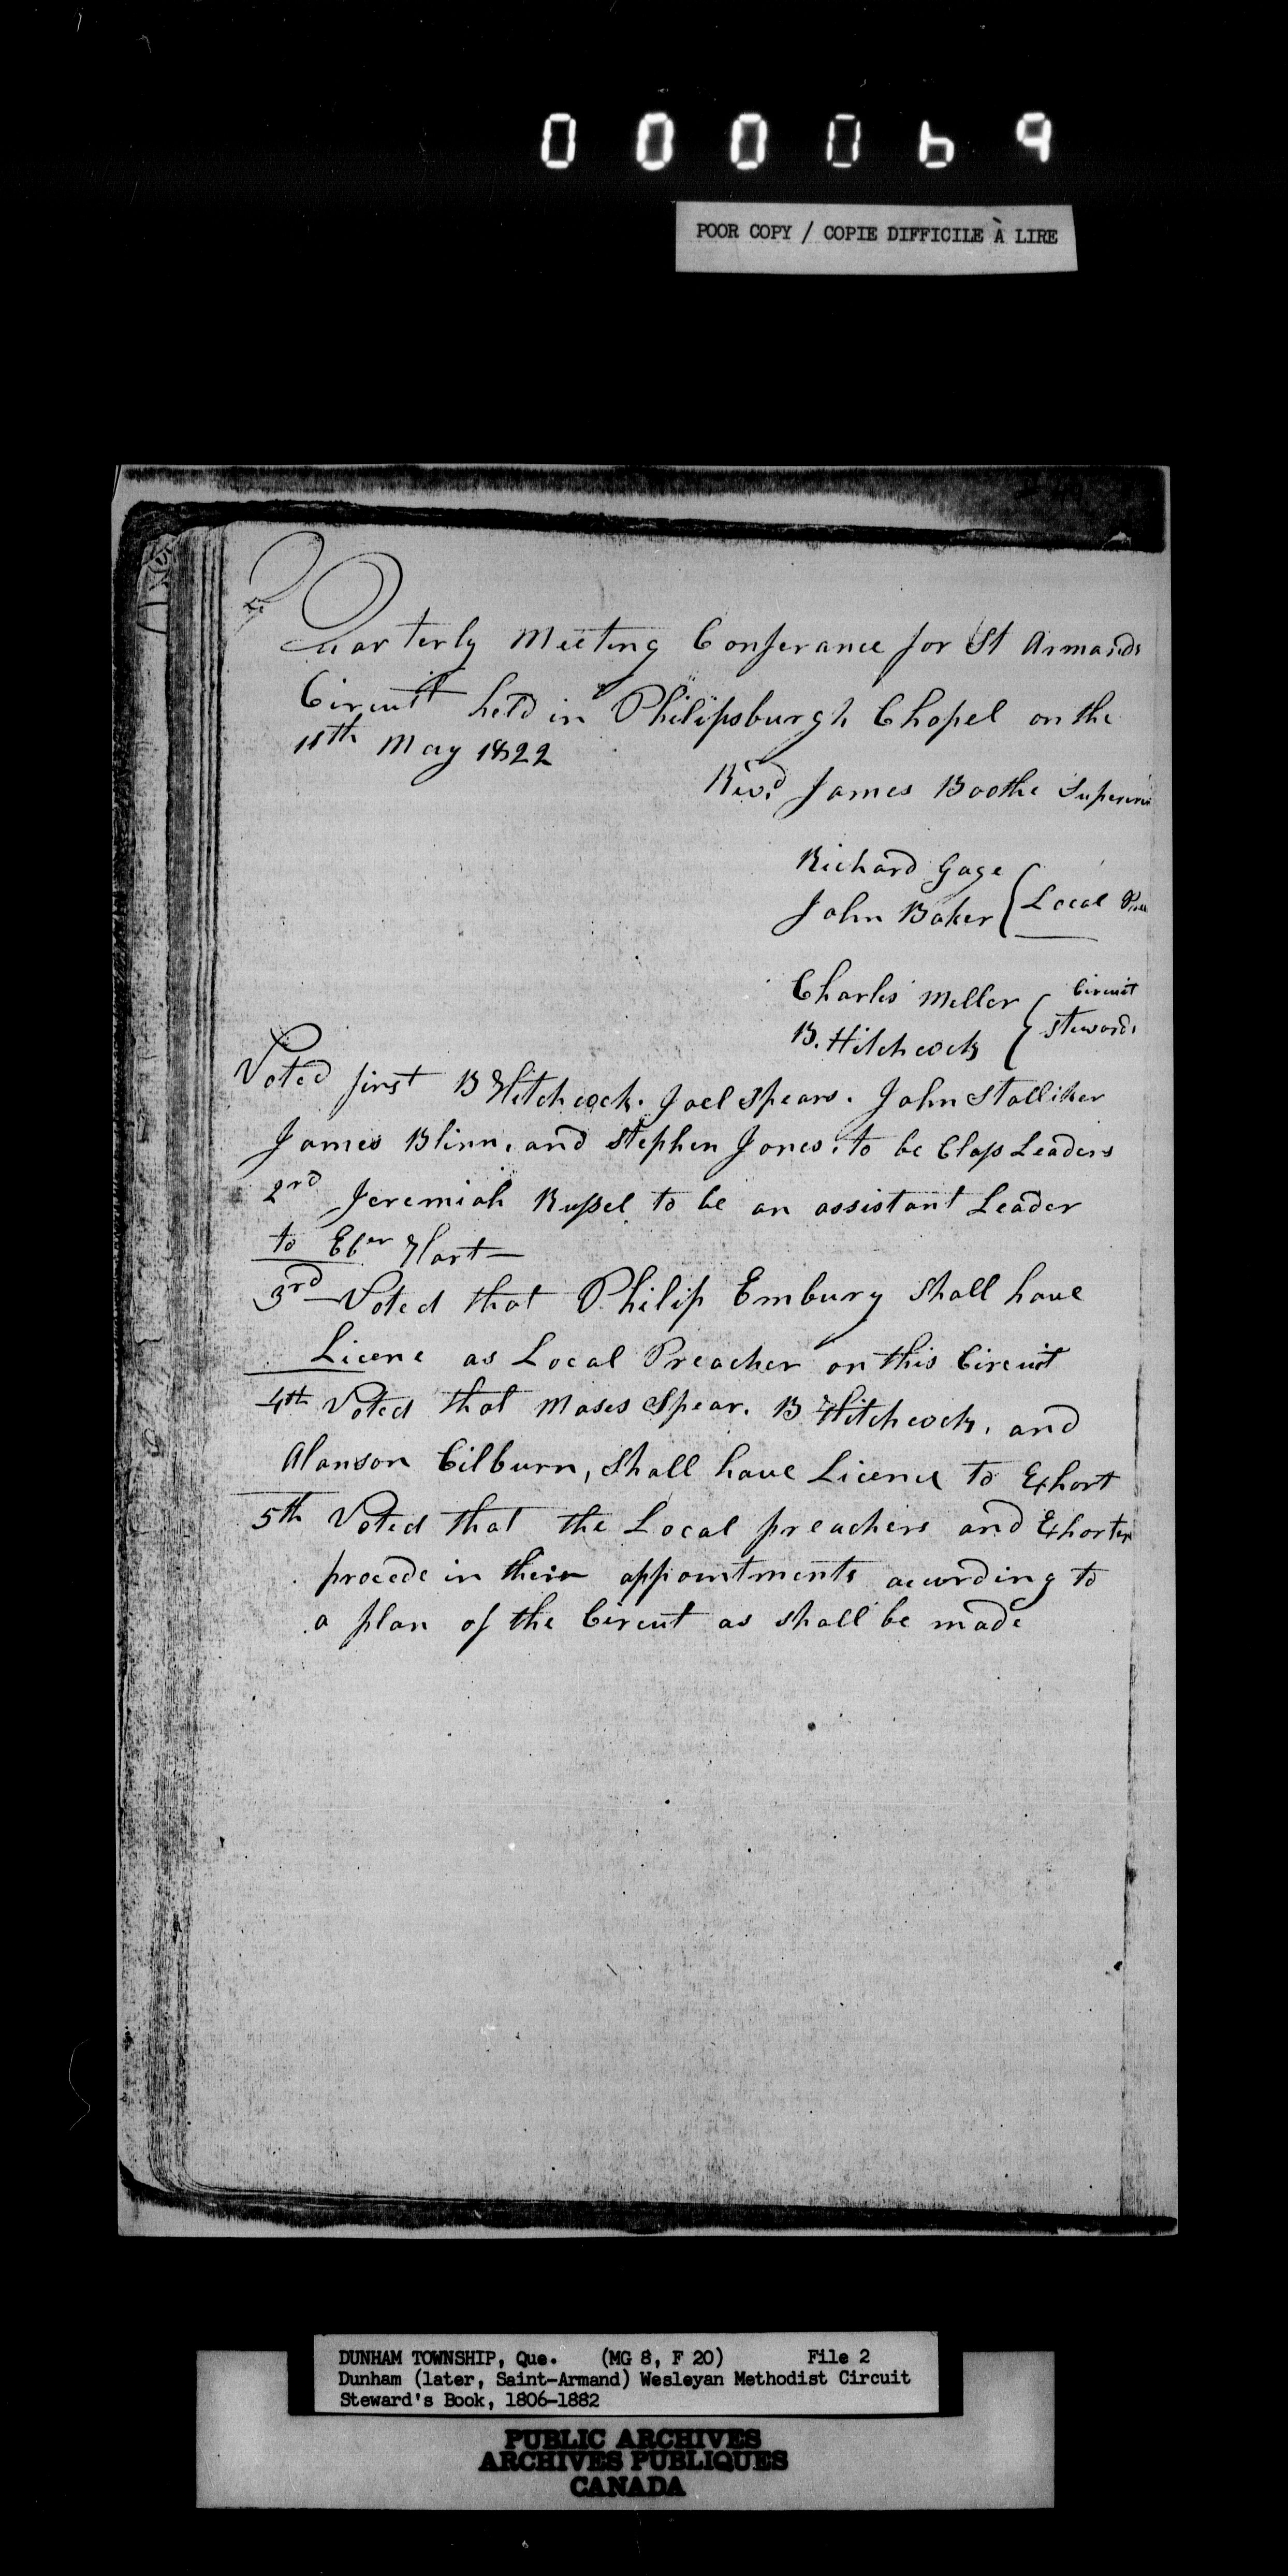 000069
POOR COPY / COPIE DIFFICILE À LIRE
Quarterly Meeting Conferance for St Armands
Circuit held in Philipsburgh Chapel on the
11th May 1822
Revd James Boothe
Richard Gage
John Baker Local
Charles Miller Circuit
B. Hitchcock Stewards
Voted first B Hitchcock. Joel Spears. John Stalliker
James Blinn, and Stephen Jones, to be Class Leaders
2nd Jeremiah Russel to be an assistant Leader
to Ebar Hart—
3rd Voted that Philip Embury shall have
Licene as Local Preacher on this Circuit
4th Voted that Moses Spear. B Hitchcock, and
Alanson Cilburn, shall have Licence to Exhort
5th Voted that the Local preachers and Exhorters
procede in their appointments acording to
a plan of the Circut as shall be made
DUNHAM TOWNSHIP, Que. (MG 8, F 20) File 2
Dunham (later, Saint-Armand) Wesleyan Methodist Circuit
Steward's Book, 1806-1882
PUBLIC ARCHIVES
ARCHIVES PUBLIQUES
CANADA